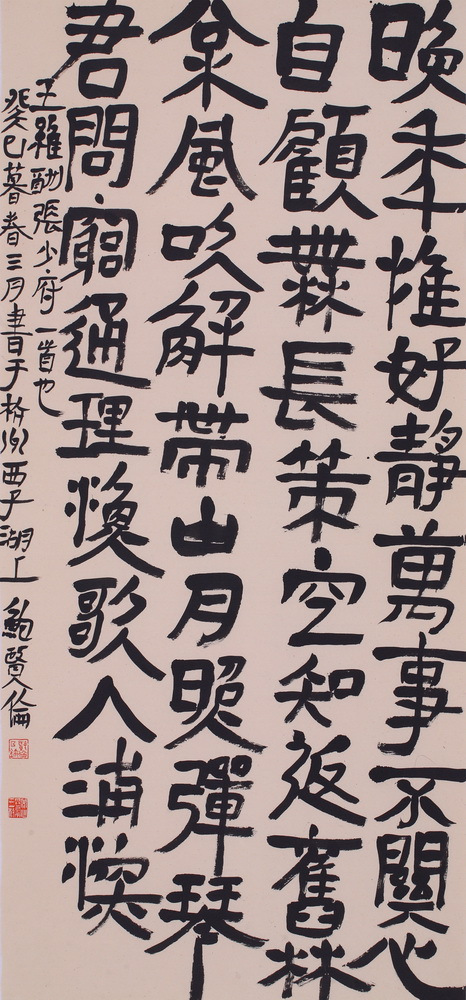 晚年惟好靜萬事不關心
自顧無長策空知返舊林
枀風吹解帶山月照彈琴
君問窮通理漁歌入浦深
王維酬張少府一首也
癸巳暮春三月書于杭州西子湖上 鮑賢倫